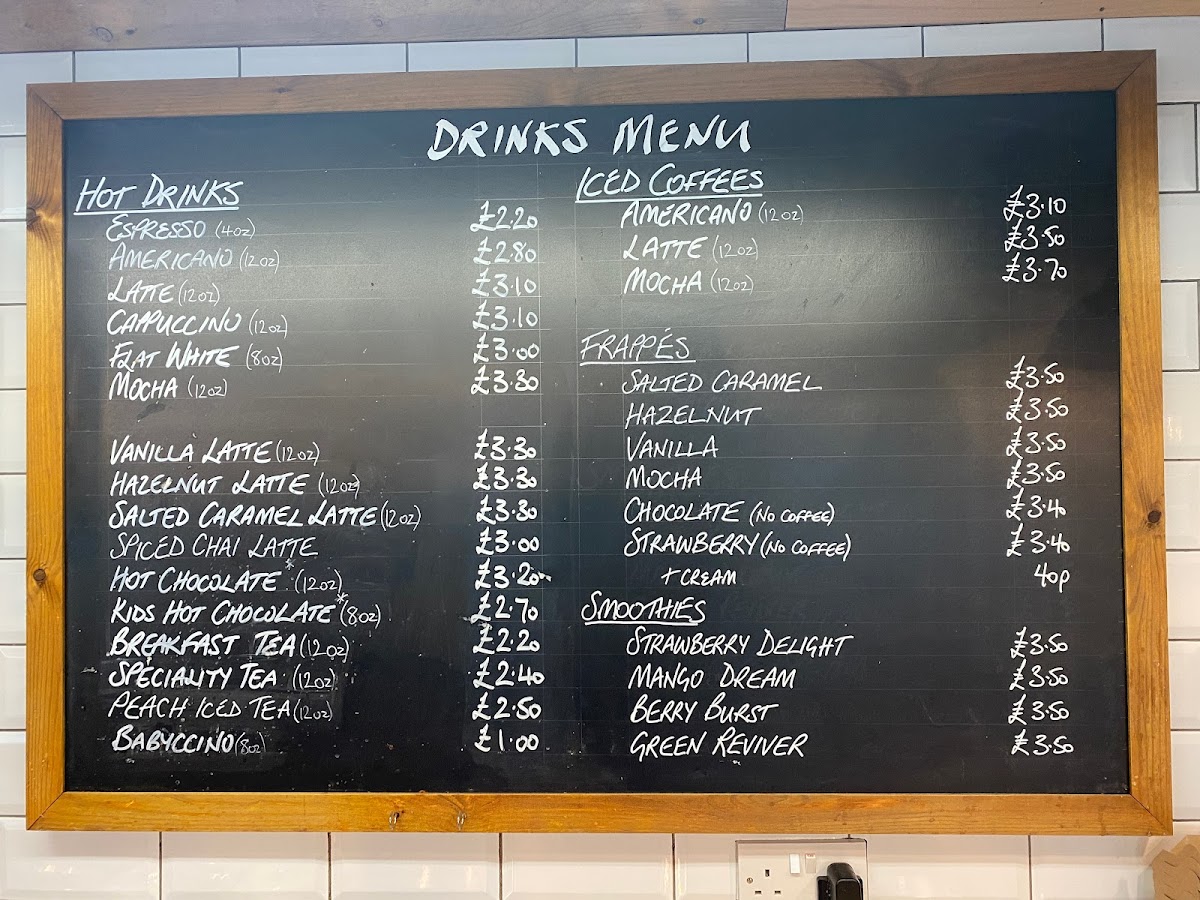 DRINKS MENU
HOT DRINKS
ESPRESSO (4oz) £2.20
AMERICANO (12oz) £2.80
LATTE (12oz) £3.10
CAPPUCCINO (12oz) £3.10
FLAT WHITE (8oz) £3.00
MOCHA (12oz) £3.30
VANILLA LATTE (12oz) £3.30
HAZELNUT LATTE (12oz) £3.30
SALTED CARAMEL LATTE (12oz) £3.30
SPICED CHAI LATTE £3.00
HOT CHOCOLATE* (12oz) £3.20
KIDS HOT CHOCOLATE* (8oz) £2.70
BREAKFAST TEA (12oz) £2.20
SPECIALITY TEA (12oz) £2.40
PEACH ICED TEA (12oz) £2.50
BABYCCINO (8oz) £1.00
ICED COFFEES
AMERICANO (12oz) £3.10
LATTE (12oz) £3.50
MOCHA (12oz) £3.70
FRAPPÉS
SALTED CARAMEL £3.50
HAZELNUT £3.50
VANILLA £3.50
MOCHA £3.50
CHOCOLATE (NO COFFEE) £3.40
STRAWBERRY (NO COFFEE) £3.40
+ CREAM 40p
SMOOTHIES
STRAWBERRY DELIGHT £3.50
MANGO DREAM £3.50
BERRY BURST £3.50
GREEN REVIVER £3.50